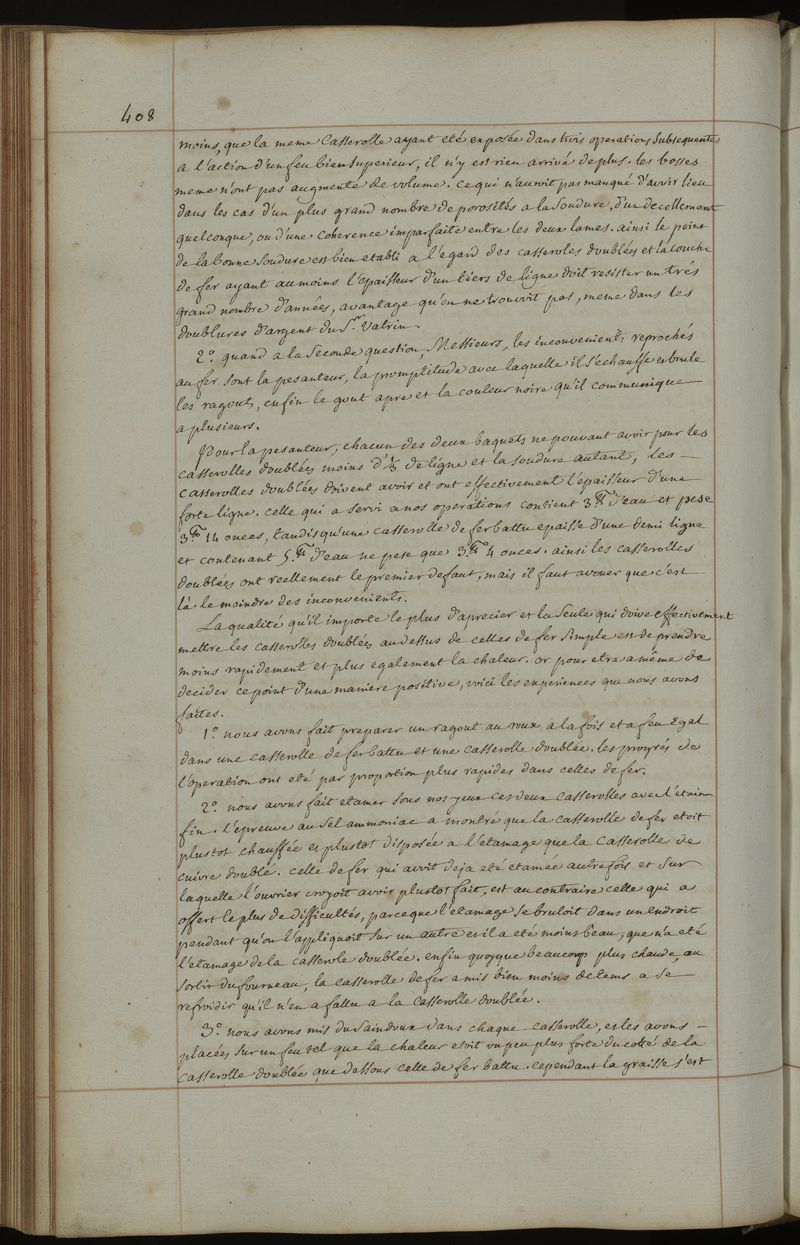 408
moins, que la meme Casserolle ayant eté exposée dans trois operations Subsequentes
a l'action d'un feu bien Superieur, il n'y est rien arrivé de plus. les bosses
meme n'ont pas augmenté de volume. ce qui n'auroit pas manqué d'avoir lieu
dans les cas d'un plus grand nombre de porosités a la Soudure, d'un decollement
quelconque, ou d'une coherence imparfaite entre les deux lames. ainsi le point
de la bonne Soudure est bien etabli a l'egard des casseroles doublées et la couche
de fer ayant au moins l'epaisseur d'un tiers de ligne doit resister un trés
grand nombre d'années, avantage qu'on ne trouvoit pas, meme dans les
doublures d'argent du Sr. Vatrin.
2°. quand a la Seconde question, Messieurs, les inconvenients reprochés
au fer sont la pesanteur, la promptitude avec laquelle il s'echauffe et brule
les ragouts, enfin le gout apre et la couleur noire qu'il communique
a plusieurs.
Pour la pesanteur, chacun des deux baquets ne pouvant avoir pour les
casserolles doublées moins d'⅓ de ligne et la Soudure autant, les —
casserolles doublées doivent avoir et ont effectivement l'épaisseur d'une
forte ligne. celle qui a servi a nos operations contient 3.tt d'eau et pese
3.tt 14 onces, tandis qu'une casserolle de fer battu epaisse d'une demi ligne
et contenant 5.tt d'eau ne pese que 3.tt 4 onces. ainsi les casserolles
doublées ont reellement le premier defaut, mais il faut avouer que c'est
là le moindre des inconvenients.
La qualité qu'il importe le plus d'aprecier et la Seule qui doive effectivement
mettre les casserolles doublées au dessus de celles de fer Simple est de prendre
moins rapidement et plus egalement la chaleur. or pour etre a même de
decider ce point d'une maniere positive, voici les experiences que nous avons
faites.
1°. nous avons fait preparer un ragout au roux a la fois et a feu Egal
dans une casserolle de fer battu et une casserolle doublée. les progrés de
l'operation ont eté par proportion plus rapides dans celles de fer.
2°. nous avons fait etamer Sous nos yeux ces deux Casserolles avec l'étain
fin. l'épreuve au Sel ammoniac a montré que la casserolle de fer etoit
plustot chauffée et plustot disposée a l'etamage que la Casserolle de
cuivre doublé. celle de fer qui avoit deja eté etamée autrefois et Sur
laquelle l'ouvrier croyoit avoir plustot fait, est au contraire celle qui a
offert le plus de difficultés, parce que l'etamage Se bruloit dans un endroit
pendant qu'on l'appliquoit Sur un autre et il a eté moins beau, que n'a eté
l'etamage de la casserole doublée. enfin quoyque beaucoup plus chaude, au
Sortir du fourneau, la casserolle de fer a mis bien moins de tems a se
refroidir qu'il n'en a fallu a la Casserolle doublée.
3°. nous avons mis du Saindoux dans chaque casserolle, et les avons —
placées Sur un feu tel que la chaleur etoit un peu plus forte du cotté de la
Casserolle doublée que dessous celle de fer battu. cependant la graisse s'est